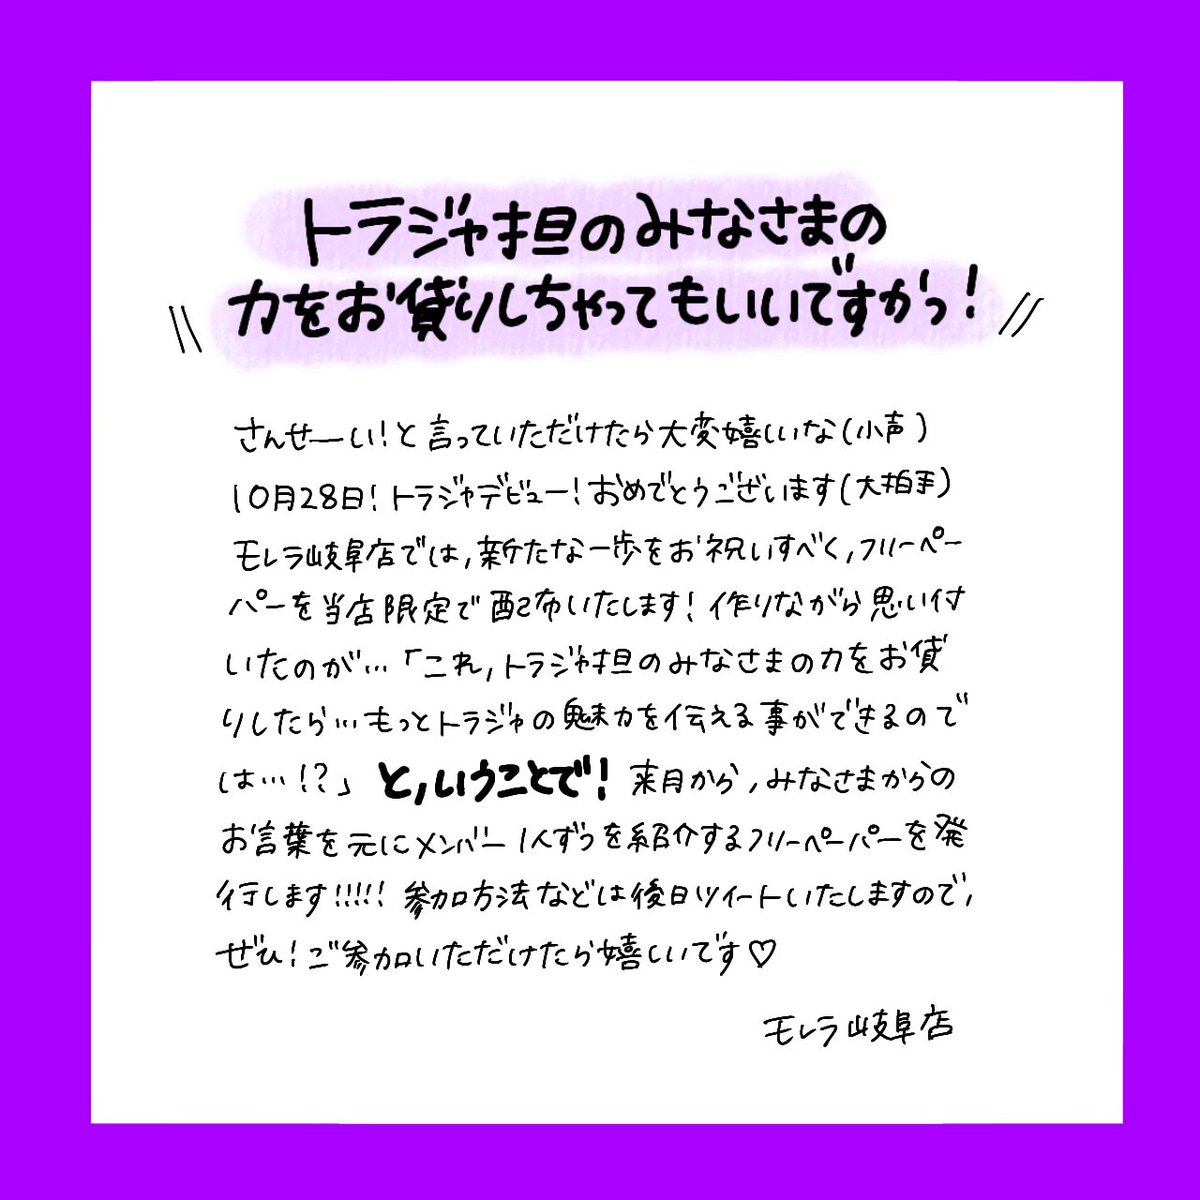 トラジャ担のみなさまの
力をお貸りしちゃってもいいですかっ!
さんせーい!と言っていただけたら大変嬉しいな(小声)
10月28日!トラジャデビュー!おめでとうございます(大拍手)
モレラ岐阜店では,新たな一歩をお祝いすべく,フリーペー
パーを当店限定で配布いたします!作りながら思い付
いたのが…「これ,トラジャ担のみなさまの力をお貸
りしたら…もっとトラジャの魅力を伝える事ができるので
は…!?」と,いうことで!来月から,みなさまからの
お言葉を元にメンバー1人ずつを紹介するフリーペーパーを発
行します!!!!!参加方法などは後日ツイートいたしますので,
ぜひ!ご参加いただけたら嬉しいです♡
モレラ岐阜店